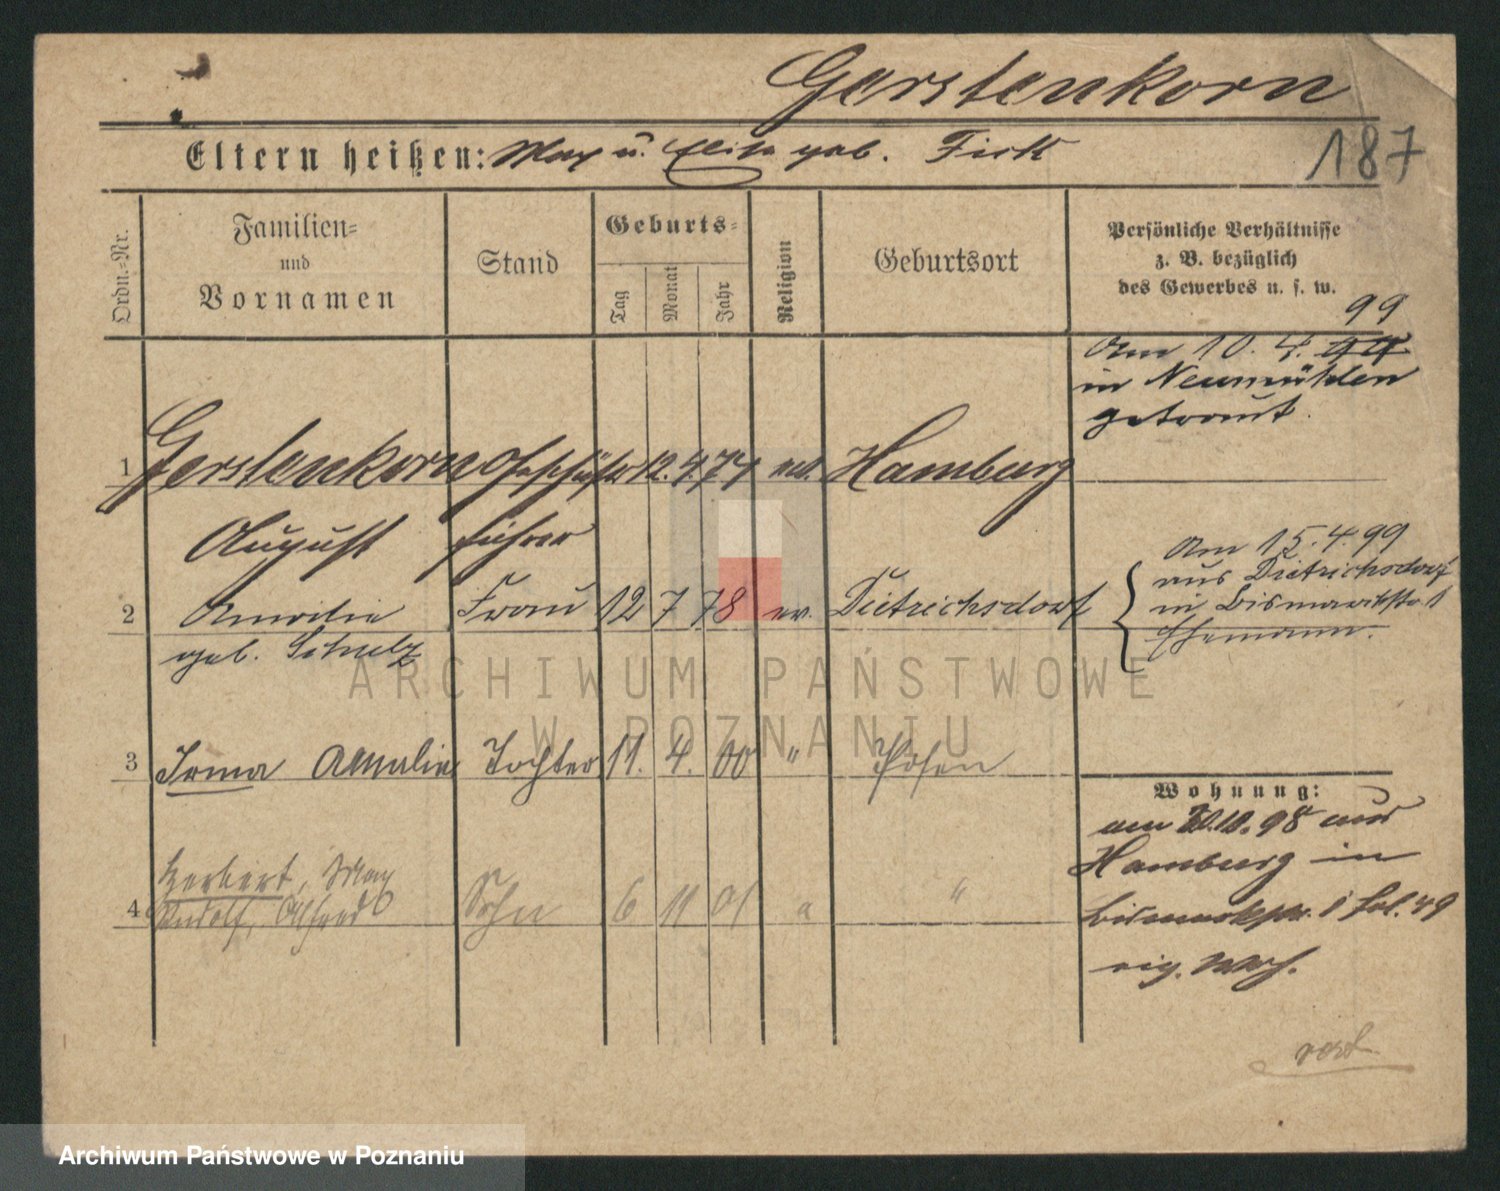 Gerstenkorn
187
Eltern heißen: Max u. Elise geb. Fick
Ordn.-Nr.
Familien-
und
Vornamen
Stand
Geburts-
Tag
Monat
Jahr
Religion
Geburtsort
Persönliche Verhältnisse
z. B. bezüglich
des Gewerbes u. s. w.
99
Am 10. 4.
in Neumühlen
getraut.
1 Gerstenkorn Geschäfts 12. 4. 74 Hamburg
August führer
2 Amalie Frau 12 7 78 ev. Dietrichsdorf
geb. Schulz
Am 15. 4. 99
aus Dietrichsdorf
in Bismarckstr 1
Ehemann.
3 Irma Amalie Tochter 11. 4. 00 " Posen
4 Herbert, Max
Rudolf, Alfred Sohn 6 11 01 " "
Wohnung:
am 20.10. 98 aus
Hamburg in
Bismarckstr. 1 49
eig. Wng.
ARCHIWUM PAŃSTWOWE
W POZNANIU
Archiwum Państwowe w Poznaniu